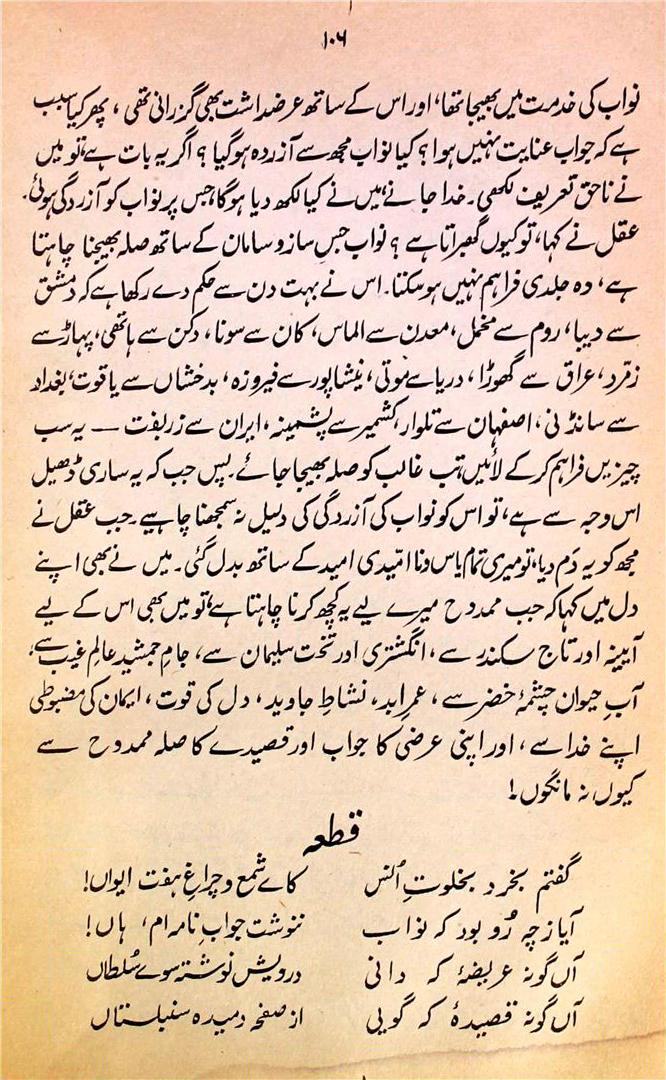 ۱۰۶
نواب کی خدمت میں بھیجا تھا، اور اس کے ساتھ عرضداشت بھی گزرانی تھی، پھر کیا سبب
ہے کہ جواب عنایت نہیں ہوا؟ کیا نواب مجھ سے آزردہ ہوگیا؟ اگر یہ بات ہے، تو میں
نے ناحق تعریف لکھی۔ خدا جانے، میں نے کیا لکھ دیا ہوگا، جس پر نواب کو آزردگی ہوئی۔
عقل نے کہا، تو کیوں گھبراتا ہے؟ نواب جس سازو سامان کے ساتھ صلہ بھیجنا چاہتا
ہے، وہ جلدی فراہم نہیں ہوسکتا۔ اس نے بہت دن سے حکم دے رکھا ہے کہ دمشق
سے دیبا، روم سے مخمل، معدن سے الماس، کان سے سونا، دکن سے ہاتھی، پہاڑ سے
زمّرد، عراق سے گھوڑا، دریا سے موتی، نیشاپور سے فیروزہ، بدخشاں سے یاقوت، بغداد
سے سانڈنی، اصفہان سے تلوار، کشمیر سے پشمینہ، ایران سے زربفت — یہ سب
چیزیں فراہم کرکے لائیں، تب غالب کو صلہ بھیجا جائے۔ پس جب کہ یہ ساری ڈھیل
اس وجہ سے ہے، تو اس کو نواب کی آزردگی کی دلیل نہ سمجھنا چاہیے۔ جب عقل نے
مجھ کو یہ دَم دیا، تو میری تمام یاس و نا امّیدی امید کے ساتھ بدل گئی۔ میں نے بھی اپنے
دل میں کہا کہ جب ممدوح میرے لیے یہ کچھ کرنا چاہتا ہے، تو میں بھی اس کے لیے
آیینہ اور تاج سکندر سے، انگشتری اور تخت سلیمان سے، جامِ جمشید عالمِ غیب سے،
آبِ حیوان چشمۂ خضر سے، عمرِ ابد، نشاطِ جاوید، دل کی قوت، ایمان کی مضبوطی
اپنے خدا سے، اور اپنی عرضی کا جواب اور قصیدے کا صلہ ممدوح سے
کیوں نہ مانگوں!
قطعہ
گفتم بخرد بخلوتِ اُنس کاے شمع و چراغِ ہفت ایواں!
آیا ز چہ رُو بود کہ نواب ننوشت جوابِ نامہ ام، ہاں!
آں گونہ عریضۂ کہ دانی درویش نوشتہ سوے سُلطاں
آں گونہ قصیدۂ کہ گویی از صفحہ دمیدہ سنبلستاں